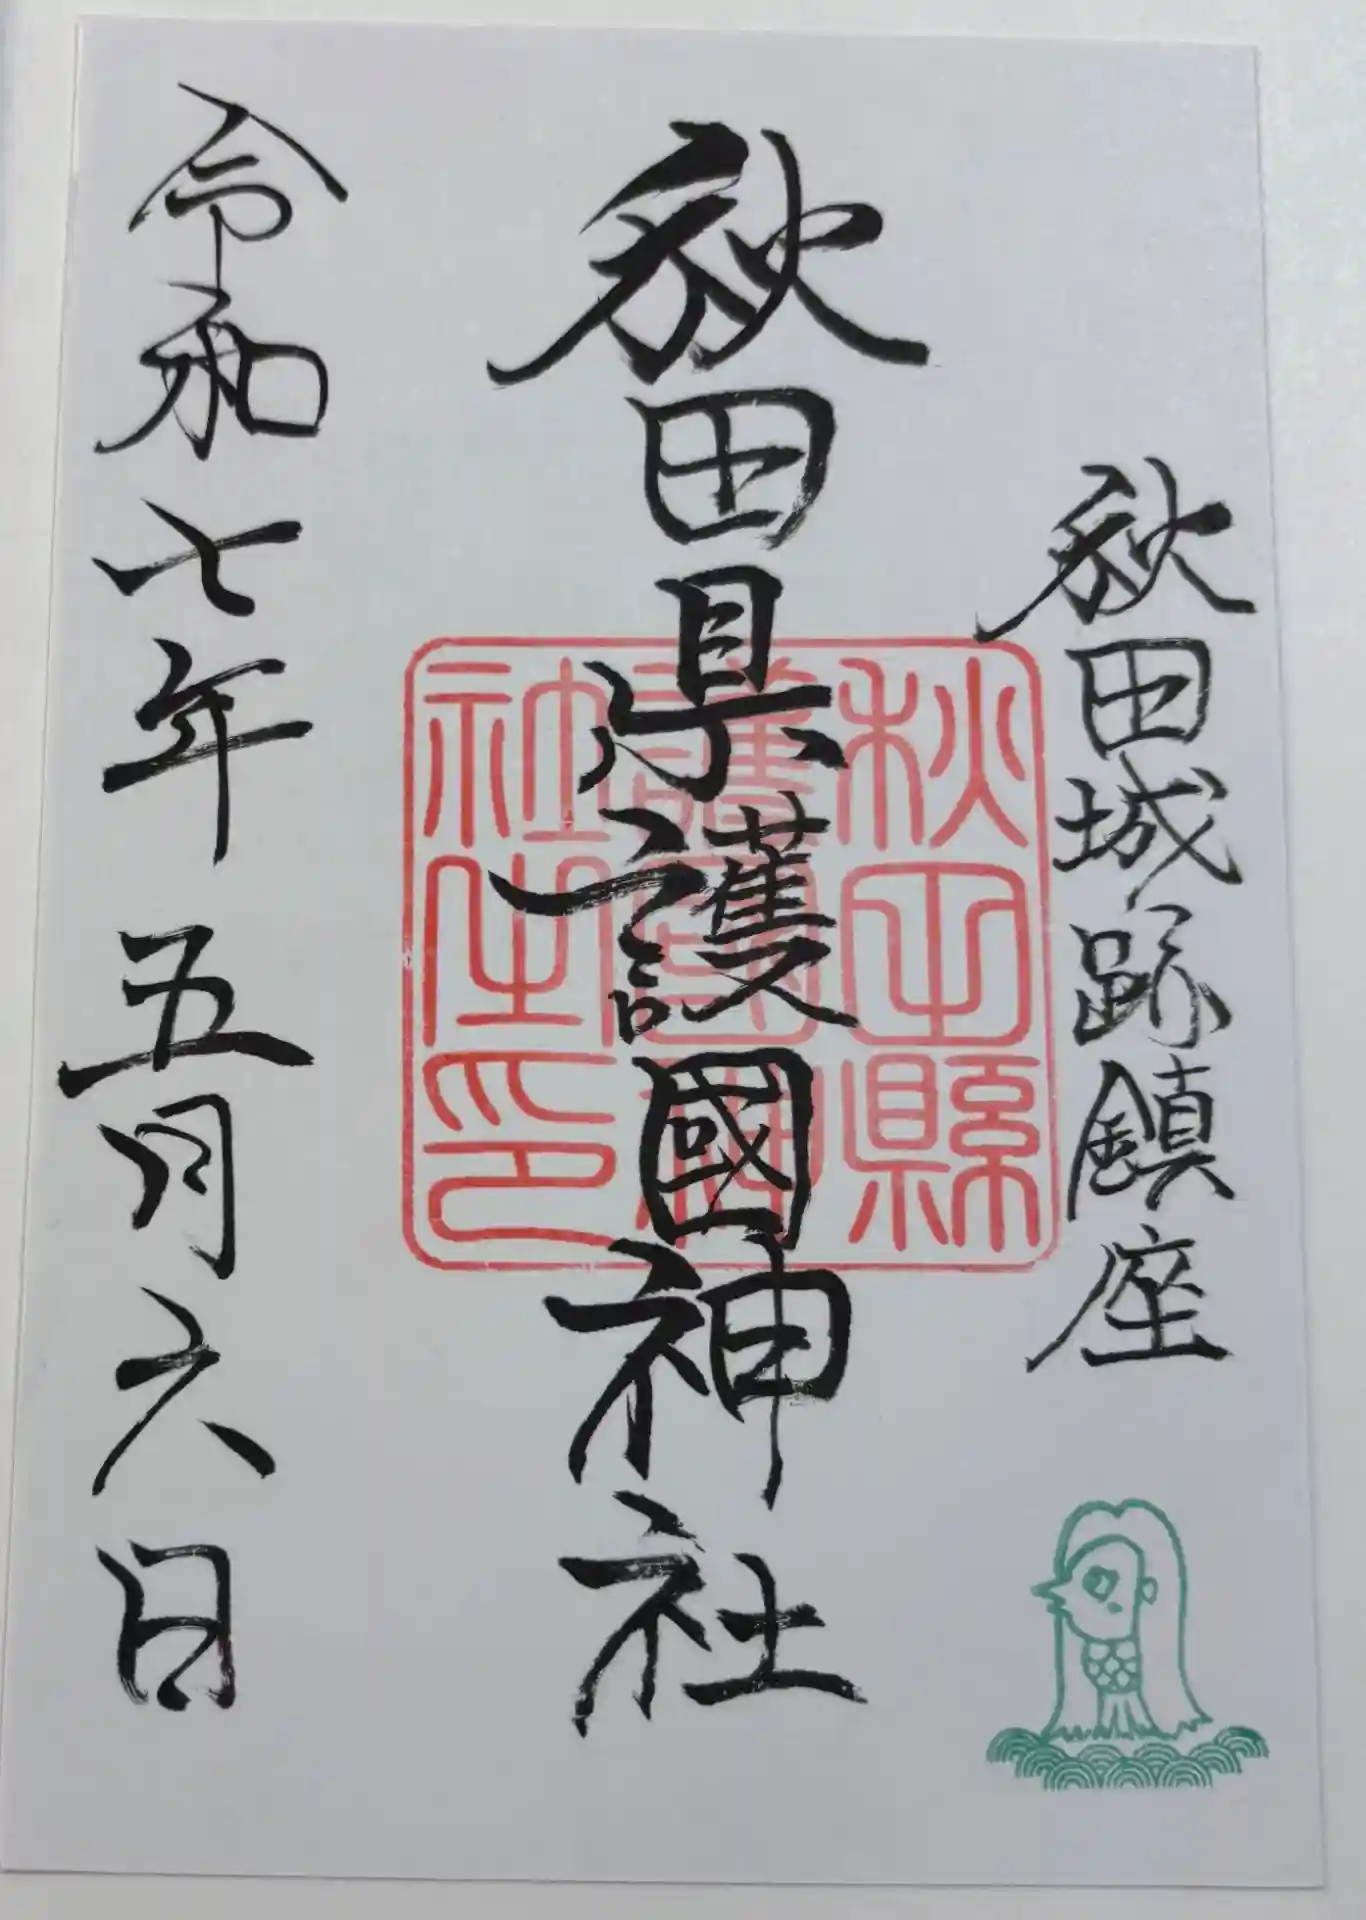 秋田城跡鎮座
秋田県護國神社
秋田縣
護國神
社之印
令和七年五月六日